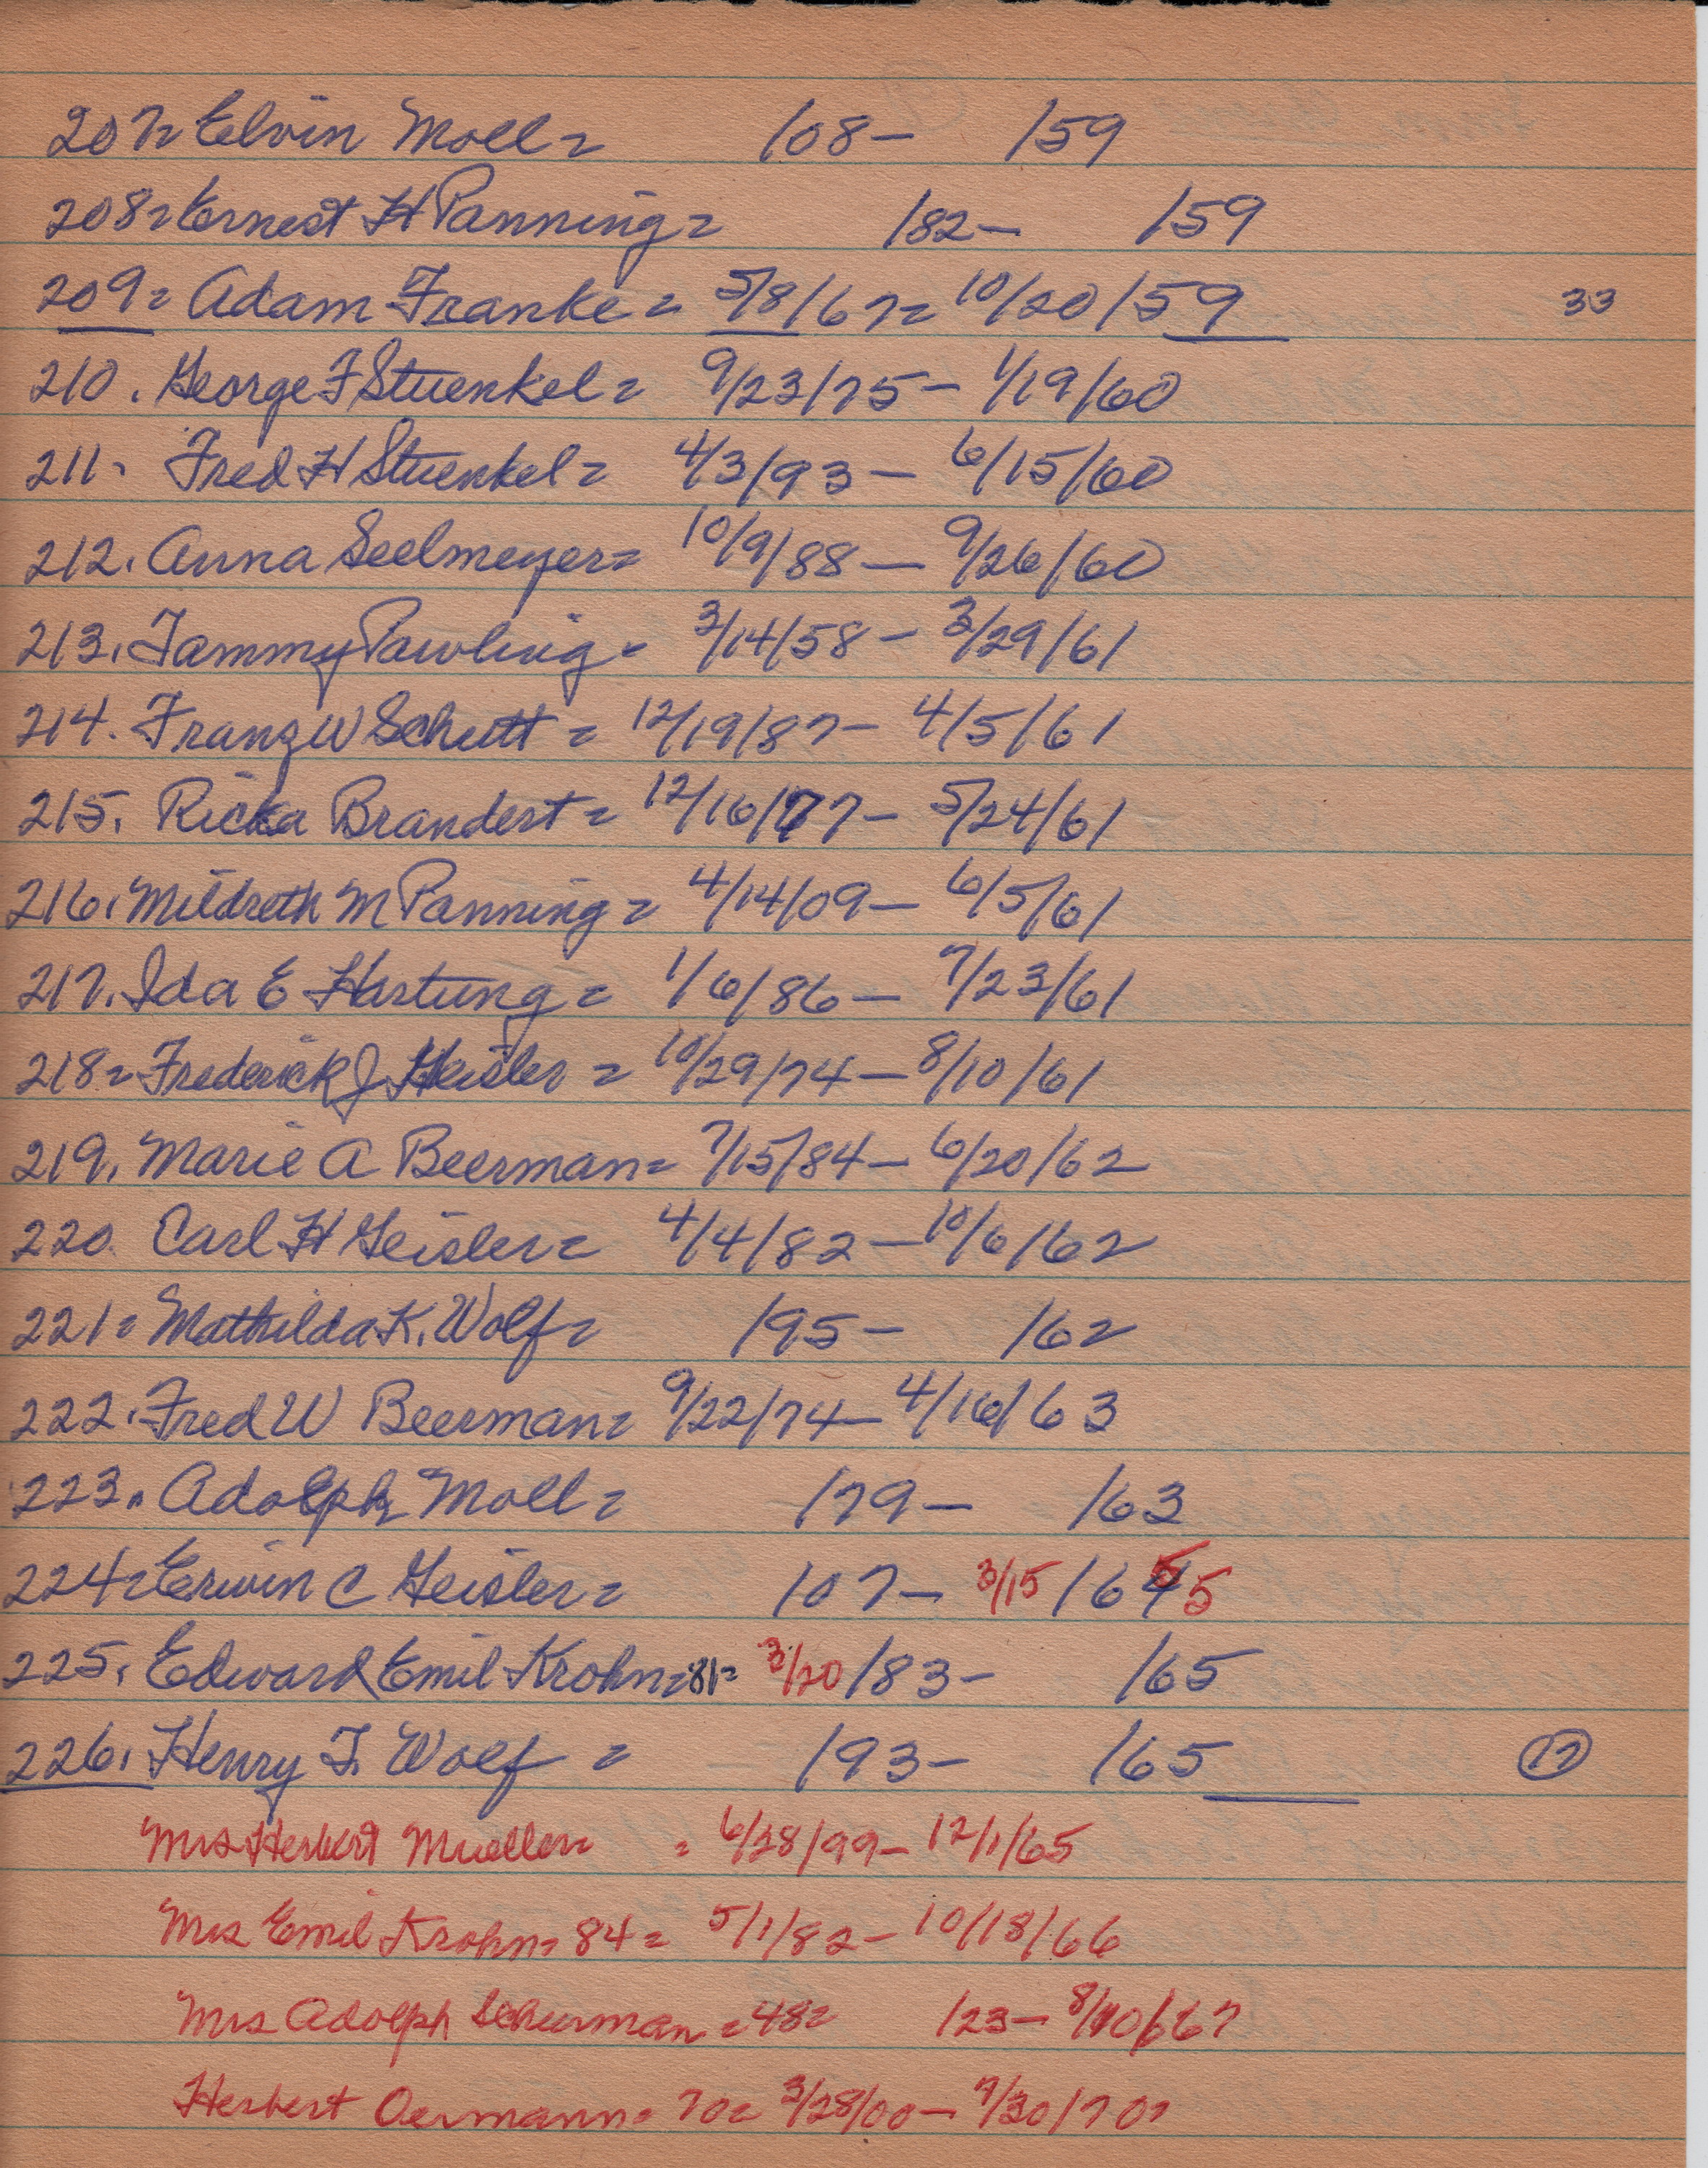 207= Elvin Moll= /08- /59
208= Ernest H Panning= /82- /59
209= Adam Franke= 5/8/67= 10/20/59 33
210. George F Stuenkel= 9/23/75- 1/19/60
211. Fred H Stuenkel= 4/3/93- 6/15/60
212. Anna Seelmeyer= 10/9/88- 9/26/60
213. Tammy Pawling= 3/14/58- 3/29/61
214. Franz W Schutt= 12/19/87- 4/5/61
215. Ricka Brandert= 12/16/77- 5/24/61
216. Mildreth M Panning= 4/14/09- 6/5/61
217. Ida E Hartung= 1/6/86- 7/23/61
218= Frederick J Heisler= 10/29/74- 8/10/61
219. Marie A Beerman= 7/15/84- 6/20/62
220. Carl H Geisler= 4/4/82- 10/6/62
221= Mathilda K. Wolf= /95- /62
222. Fred W Beerman= 9/22/74- 4/16/63
223. Adolph Moll= /79- /63
224= Erwin C Geisler= /07- 3/15/645
225. Edward Emil Krohn=81= 3/20/83- /65
226. Henry F. Wolf= /93- /65 17
Mrs Herbert Mueller= = 6/28/99- 12/1/65
Mrs Emil Krohn= 84= 5/1/82- 10/18/66
Mrs Adolph Schurman=48= /23- 8/10/67
Herbert Oermann= 70= 3/28/00- 9/30/70=